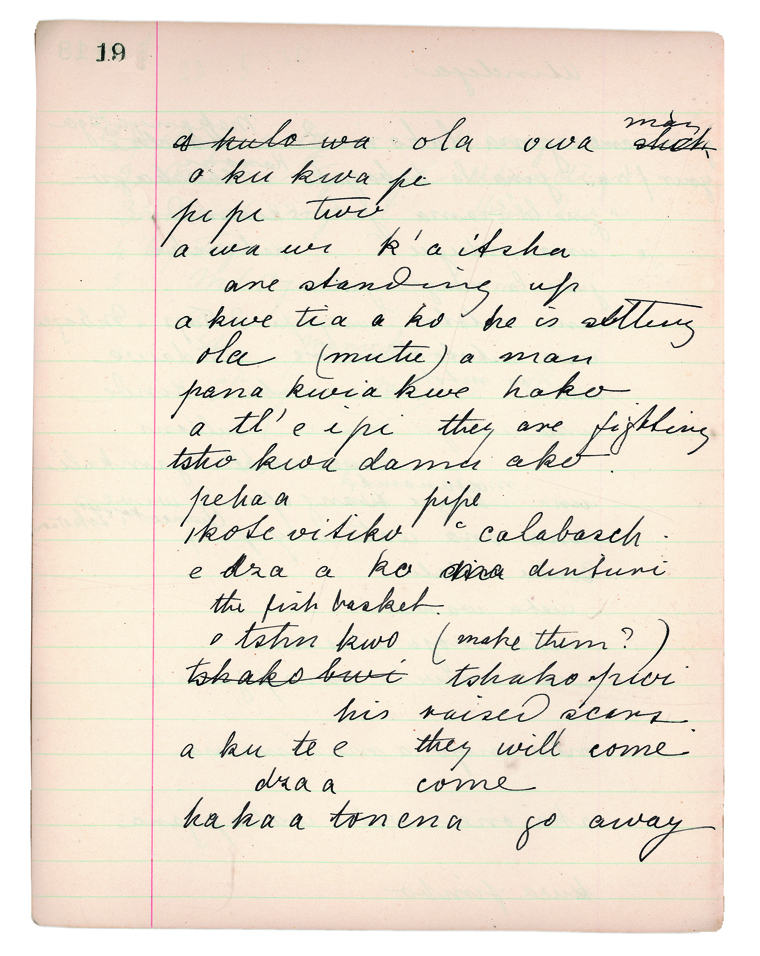 19
a kulo wa ola owa man stick
o ku kwa pe
pi pi two
a wa wi k'a itsha
are standing up
a kwe tia a ko he is sitting
ola (mutu) a man
pana kwia kwe hako
a tl' e i pi they are fighting
tsho kwa damu ako
pehaa pipe
kote vitiko a calabasch.
e dza a ko dinturi
the fish basket.
o tshu kwo (make them?)
tshako bwi tshako pwi
his raised scars
a ku te e they will come
dza a come
ka ka a tonena go away